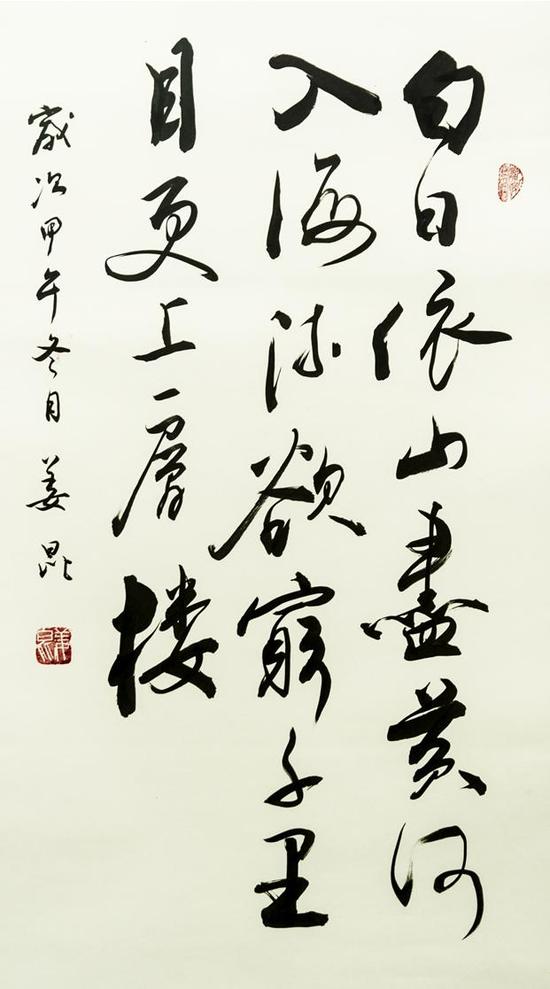 白日依山盡黄河
入海流欲窮千里
目更上一層樓
歲次甲午冬月 姜昆